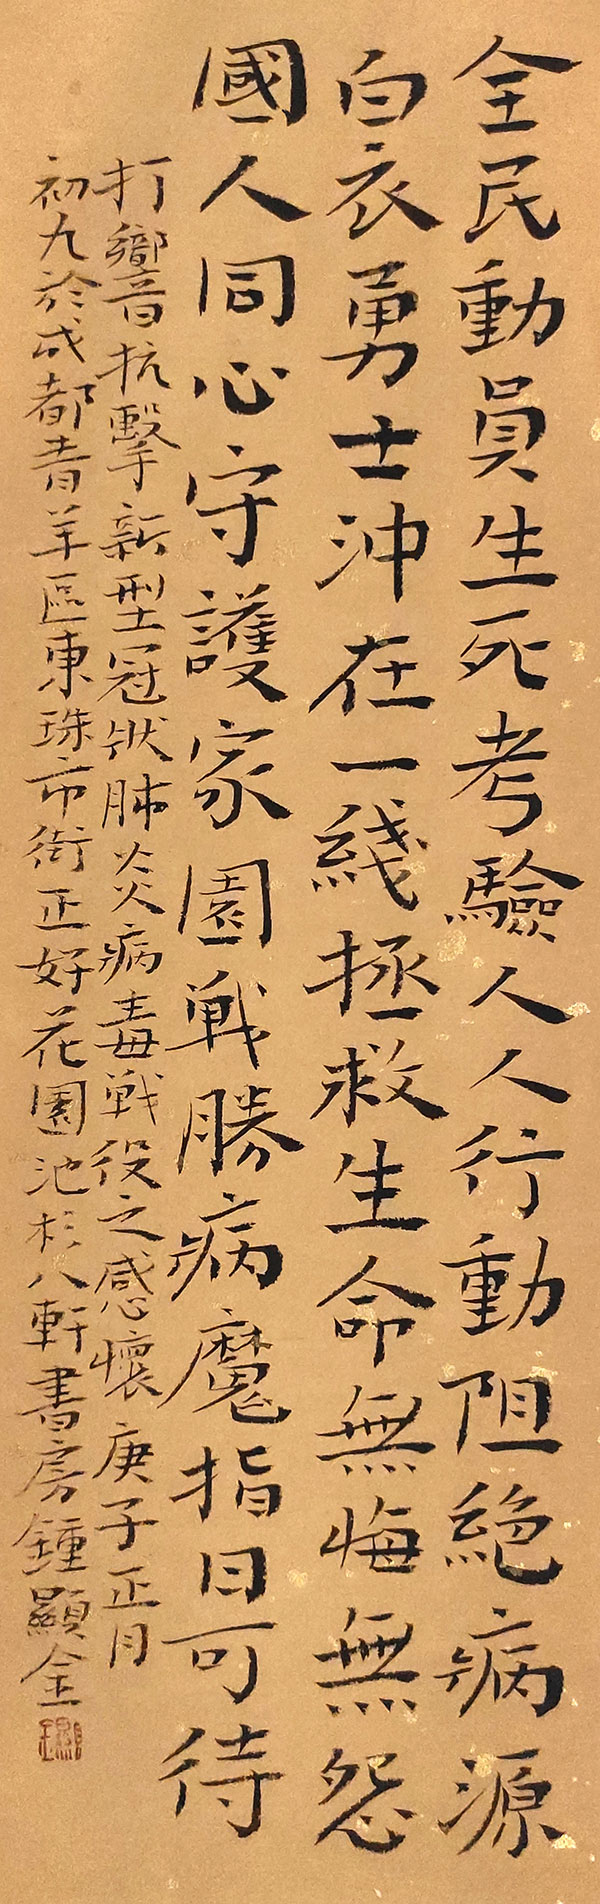 全民動員生死考驗人人行動阻絕病源
白衣勇士沖在一綫拯救生命無悔無怨
國人同心守護家園戰勝病魔指日可待
打響抗擊新型冠狀肺炎病毒戰役之感懷庚子正月
初九於成都青羊區東珠市街正好花園池杉八軒書房鍾顯全